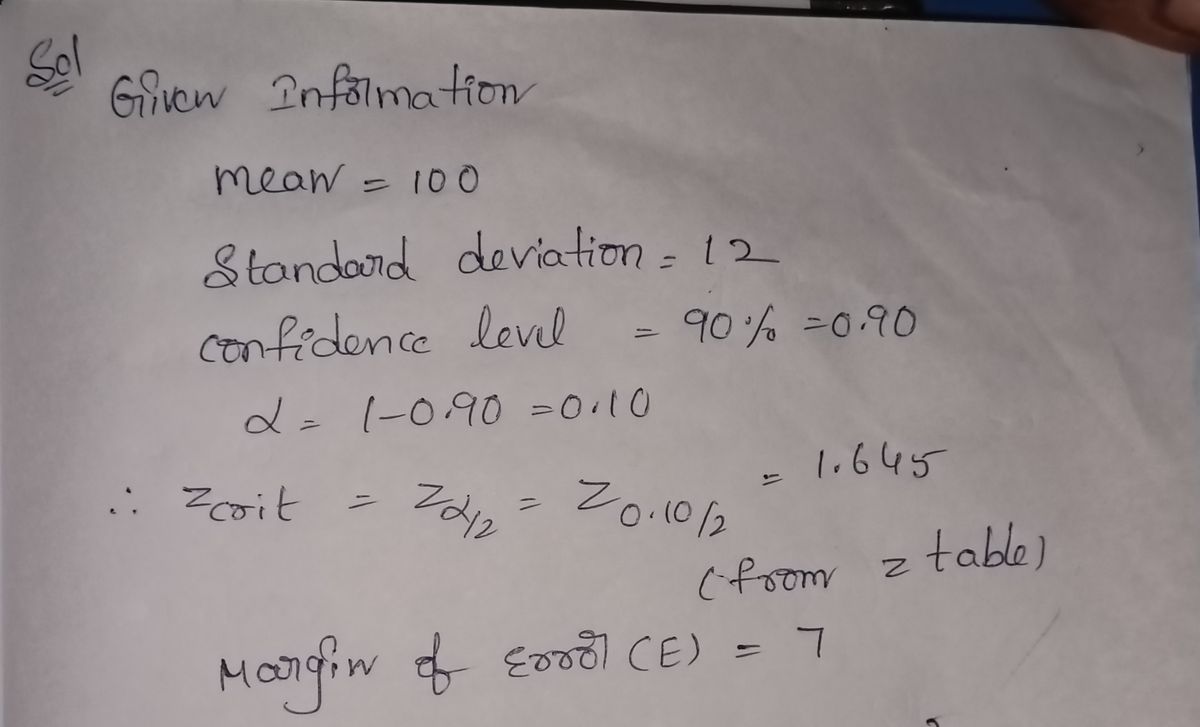 Sol
Given Information
mean = 100
Standard deviation = 12
confidence level = 90% = 0.90
α = 1-0.90 = 0.10
∴ Zcrit = Zα/2 = Z0.10/2 = 1.645
(from z table)
Margin of Error (E) = 7